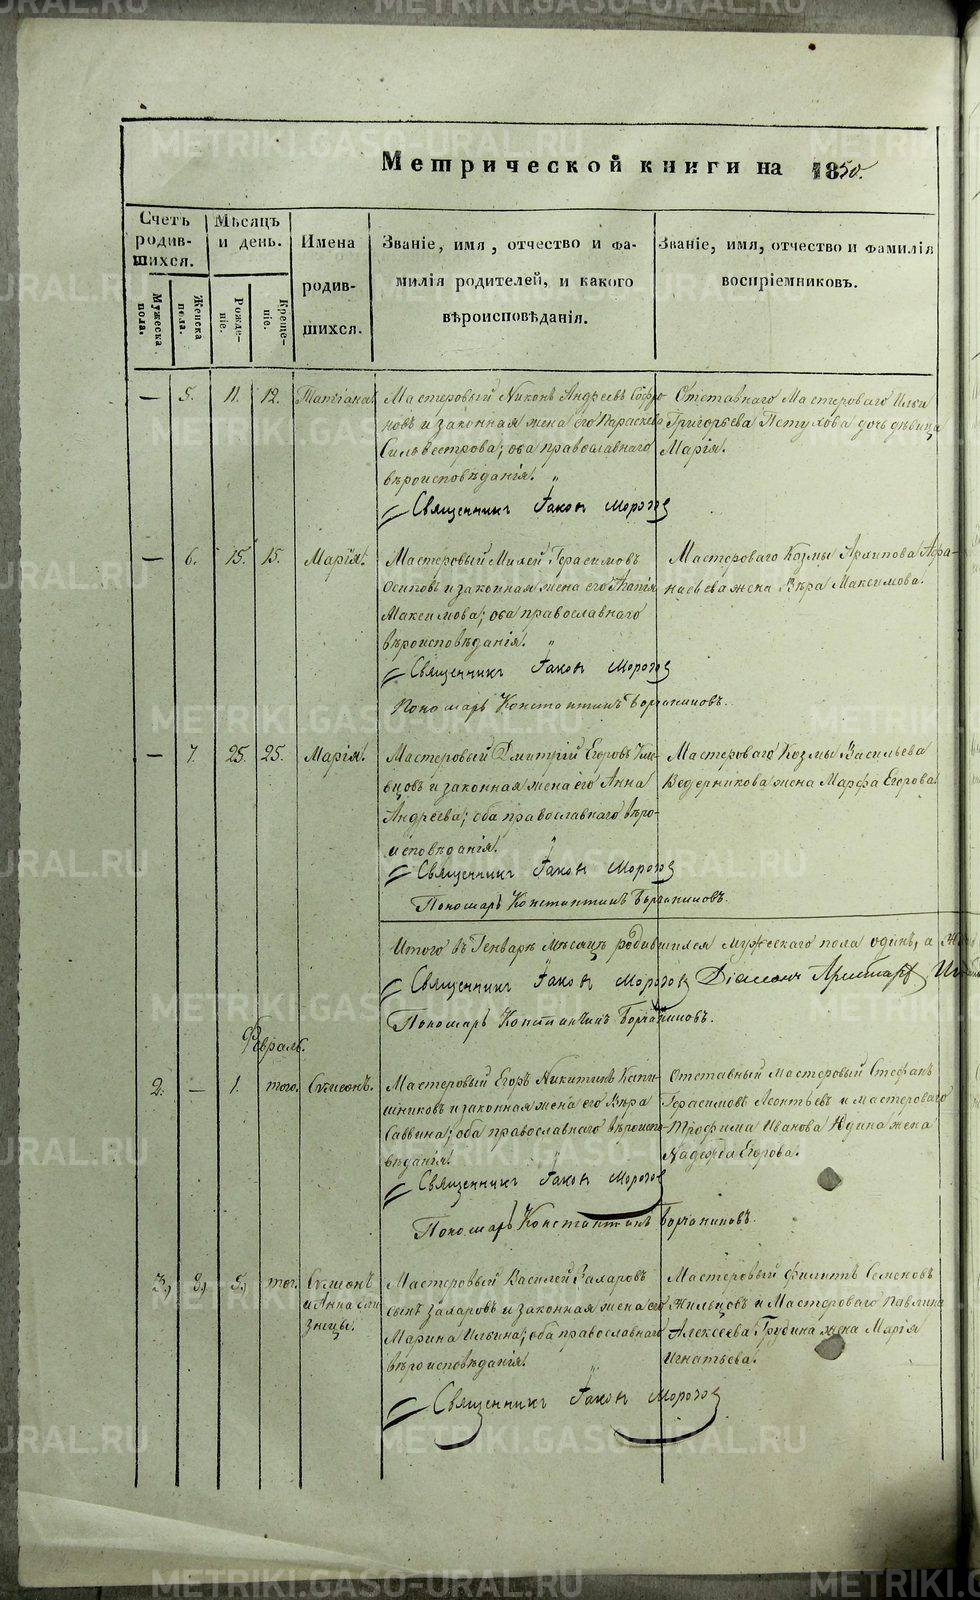 Метрической книги на 1850.
Счетъ родив-шихся.
Мѣсяцъ и день.
Имена родив-шихся.
Званіе, имя, отчество и фа-
милія родителей, и какого
вѣроисповѣданія.
Званіе, имя, отчество и фамилія
воспріемниковъ.
Мужеска пола.
Женска пола.
Рожде-ніе.
Креще-ніе.
— 5. 11. 12. Татіана.
Мастеровый Никонъ Андреевъ Софро-
новъ и законная жена его Параскева
Сильвестрова; оба православнаго
вѣроисповѣданія. „
Отставнаго Мастероваго Ильи
Григорьева Петухова дочь дѣвица
Марія.
Священникъ Іаковъ Морозов
— 6. 15. 15. Марія.
Мастеровый Милей Герасимовъ
Осиповъ и законная жена его Агапія
Максимова; оба православнаго
вѣроисповѣданія. „
Мастероваго Козмы Архипова Афа-
насьева жена Вѣра Максимова.
Священникъ Іаковъ Морозов
Пономарь Константинъ
— 7. 25. 25. Марія.
Мастеровый Дмитрій Егоровъ
и законная жена его Анна
Андреева; оба православнаго вѣро-
исповѣданія. „
Мастероваго Козмы Васильева
Ведерникова жена Марфа Егорова.
Священникъ Іаковъ Морозов
Пономарь Константинъ
Итого въ Генварѣ мѣсяцѣ родившихся мужескаго пола одинъ, а
Священникъ Іаковъ Морозов Діаконъ
Пономарь Константинъ
Февраль.
2. — 1. того. Сѵмеонъ.
Мастеровый Егоръ Никитинъ
и законная жена его Вѣра
Саввина; оба православнаго вѣроиспо-
вѣданія. „
Отставный мастеровый Стефанъ
Герасимовъ Леонтьевъ и мастероваго
Трофима Иванова Юдина жена
Надежда Егорова.
Священникъ Іаковъ Морозов
Пономарь Константинъ
3, 8, 5, тог. Сѵмеонъ
и Анна бли-
знецы.
Мастеровый Василей Захаровъ
сынъ Захаровъ и законная жена его
Марина Ильина; оба православнаго
вѣроисповѣданія. „
Мастеровый Филиппъ Семеновъ
Жильцовъ и Мастероваго Павлина
Алексеева Грудина жена Марія
Игнатьева.
Священникъ Іаковъ Морозов
METRIKI.GASO-URAL.RU